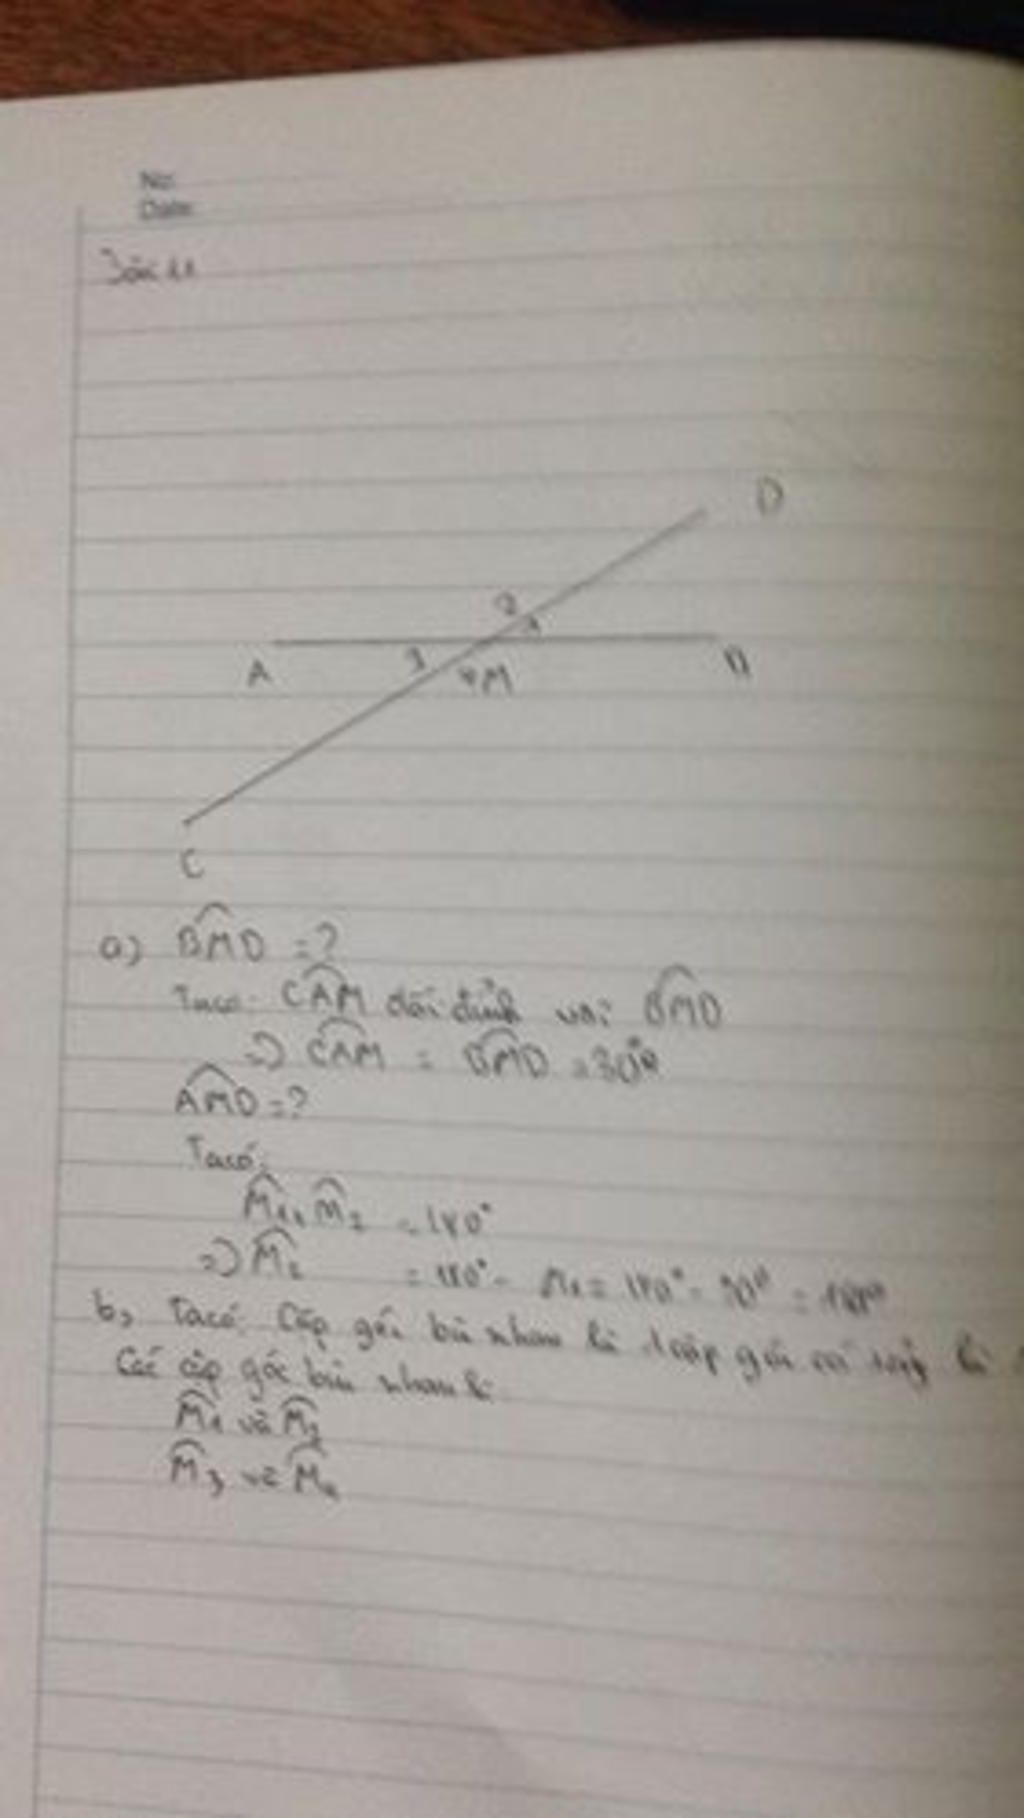 No:
Date:
Bài 11
D
2
1
A
3
4 M
B
C
a) BMD = ?
Ta có: CAM đối đỉnh với BMD
=> CAM = BMD = 30°
AMD = ?
Ta có:
M1 + M2 = 180°
=> M2 = 180° - M1 = 180° - 30° =
b, Ta có: Cặp góc bù nhau là 1 cặp góc có là
Các cặp góc bù nhau là
M1 và
M3 và